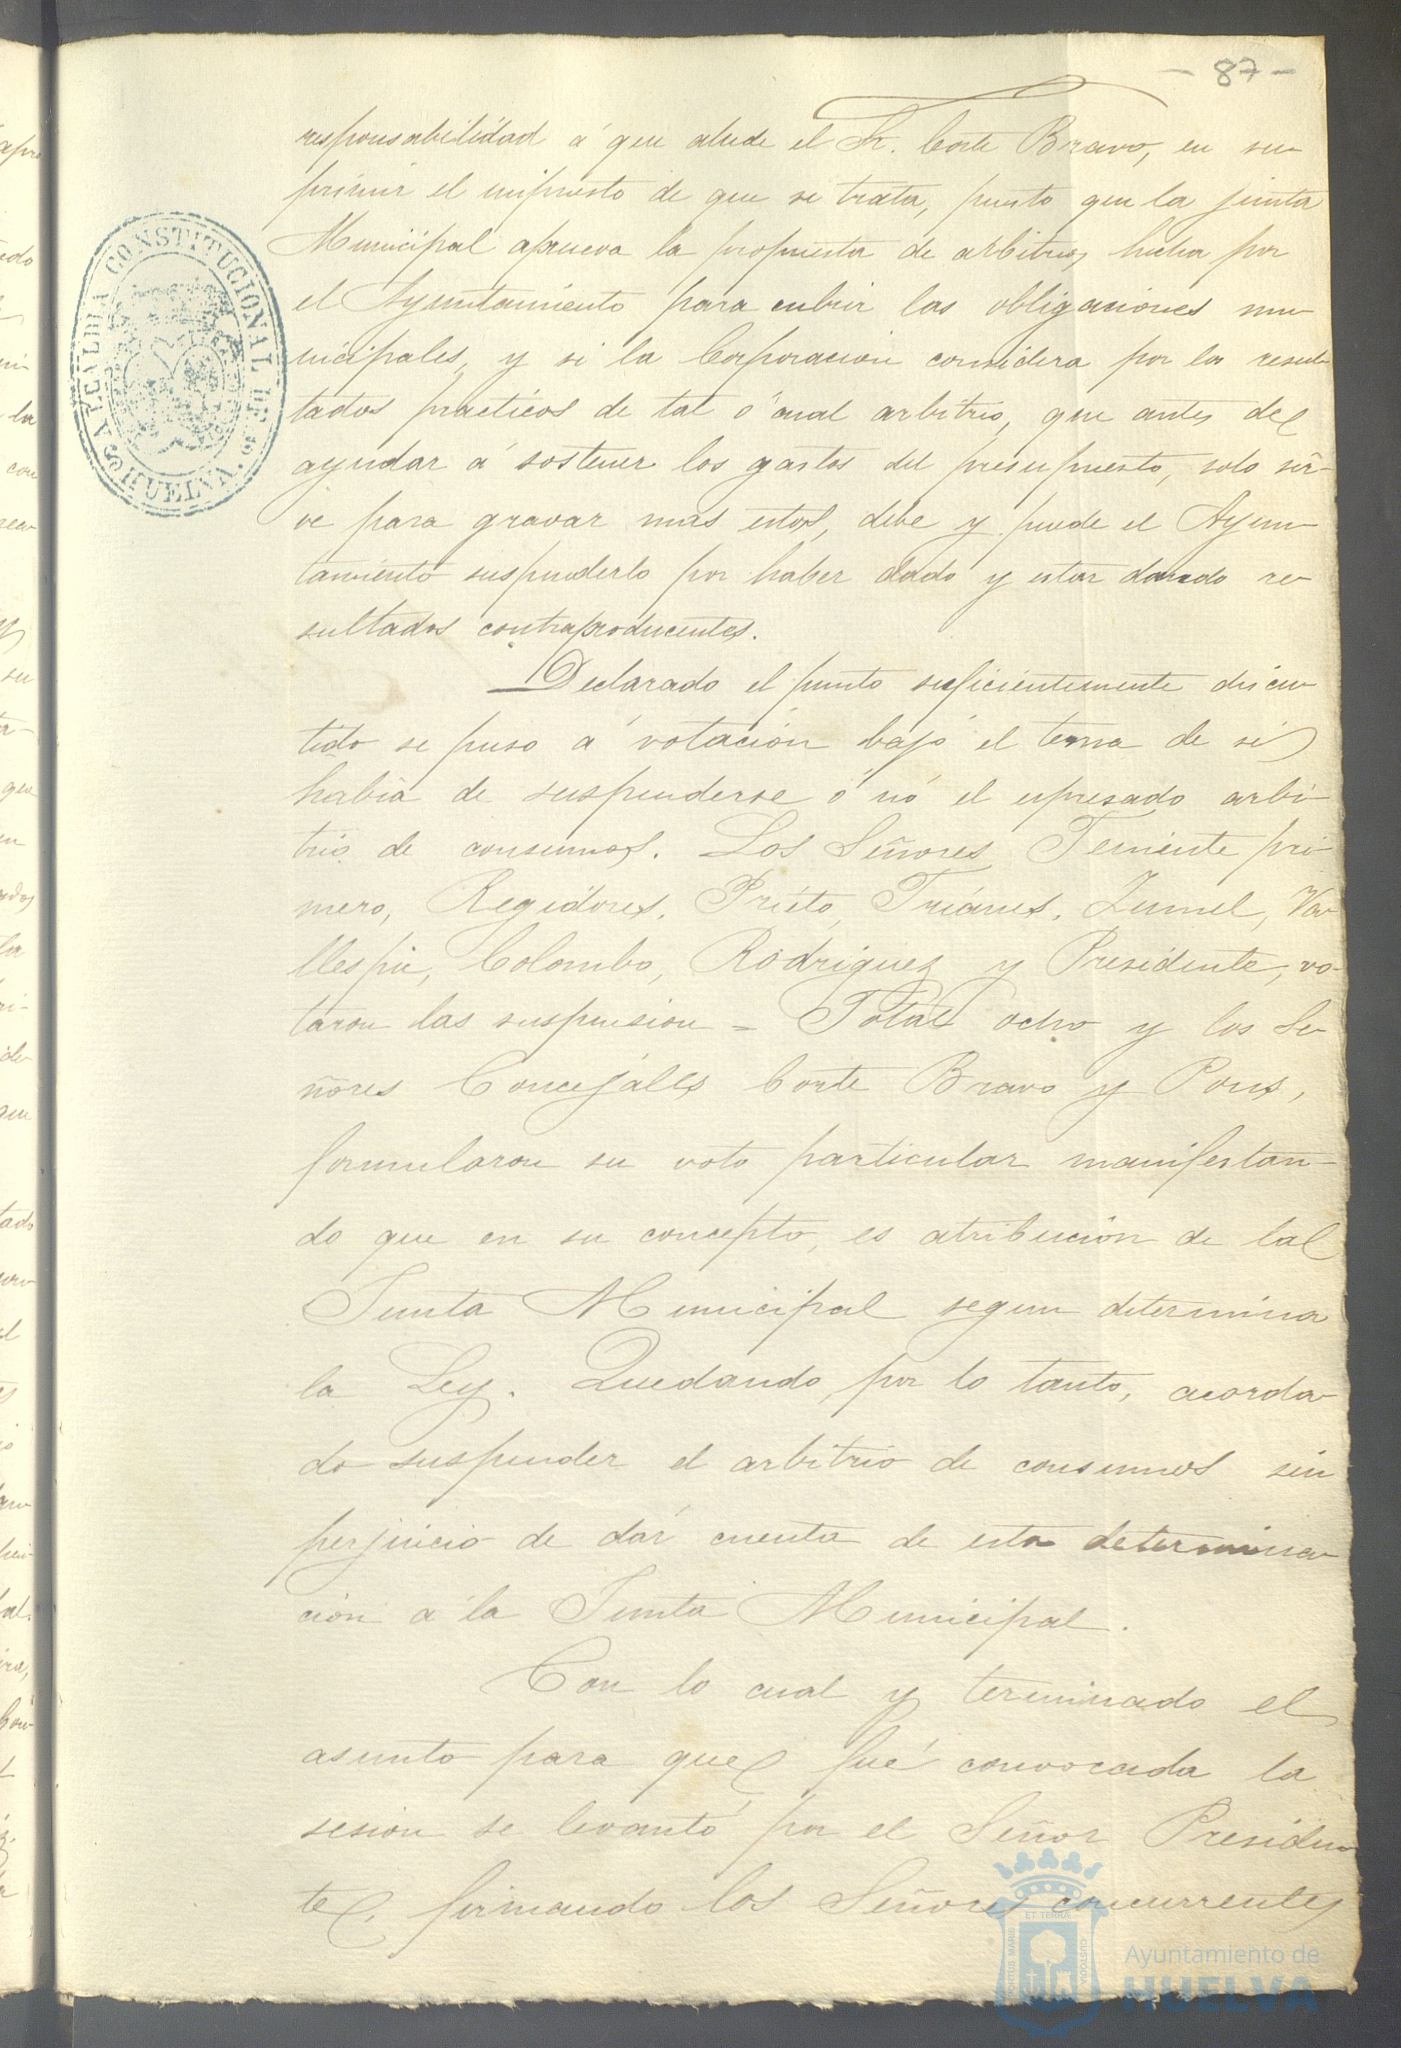 - 87 -
responsabilidad á que alude el Sr. Corte Bravo, en su
primir el impuesto de que se trata, puesto que la junta
Municipal aprueva la propuesta de arbitrios hecha por
el Ayuntamiento para cubrir las obligaciones mu
nicipales, y si la Corporacion considera por los resul
tados practicos de tal ó cual arbitrio, que antes de
ayudar á sostener los gastos del presupuesto, solo sir-
ve para gravar mas estos, debe y puede el Ayun-
tamiento suspenderlo por haber dado y estar dando re
sultados contraproducentes.
Declarado el punto suficientemente discu
tido se puso á votación bajo el tema de si
había de suspenderse ó nó el espresado arbi-
trio de consumos. Los Señores Teniente pri
mero, Regidores, Prieto, Triánes, Zumel, Va
llespin, Colombo, Rodriguez y Presidente, vo-
taron las suspension = Total ocho y los Se
ñores Concejales Corte Bravo y Pons,
formularon su voto particular manifestan-
do que en su concepto, es atribución de la
Junta Municipal segun determina
la Ley. Quedando, por lo tanto, acorda-
do suspender el arbitrio de consumos sin
perjuicio de dár cuenta de esta determina
ción á la Junta Municipal.
Con lo cual y terminado el
asunto para que fué convocada la
sesion se levantó por el Señor Presiden
te, firmando los Señores concurrentes
ALCALDIA CONSTITUCIONAL DE
HUELVA.
PORTUS MARIS ET TERRÆ CUSTODIA
Ayuntamiento de
HUELVA